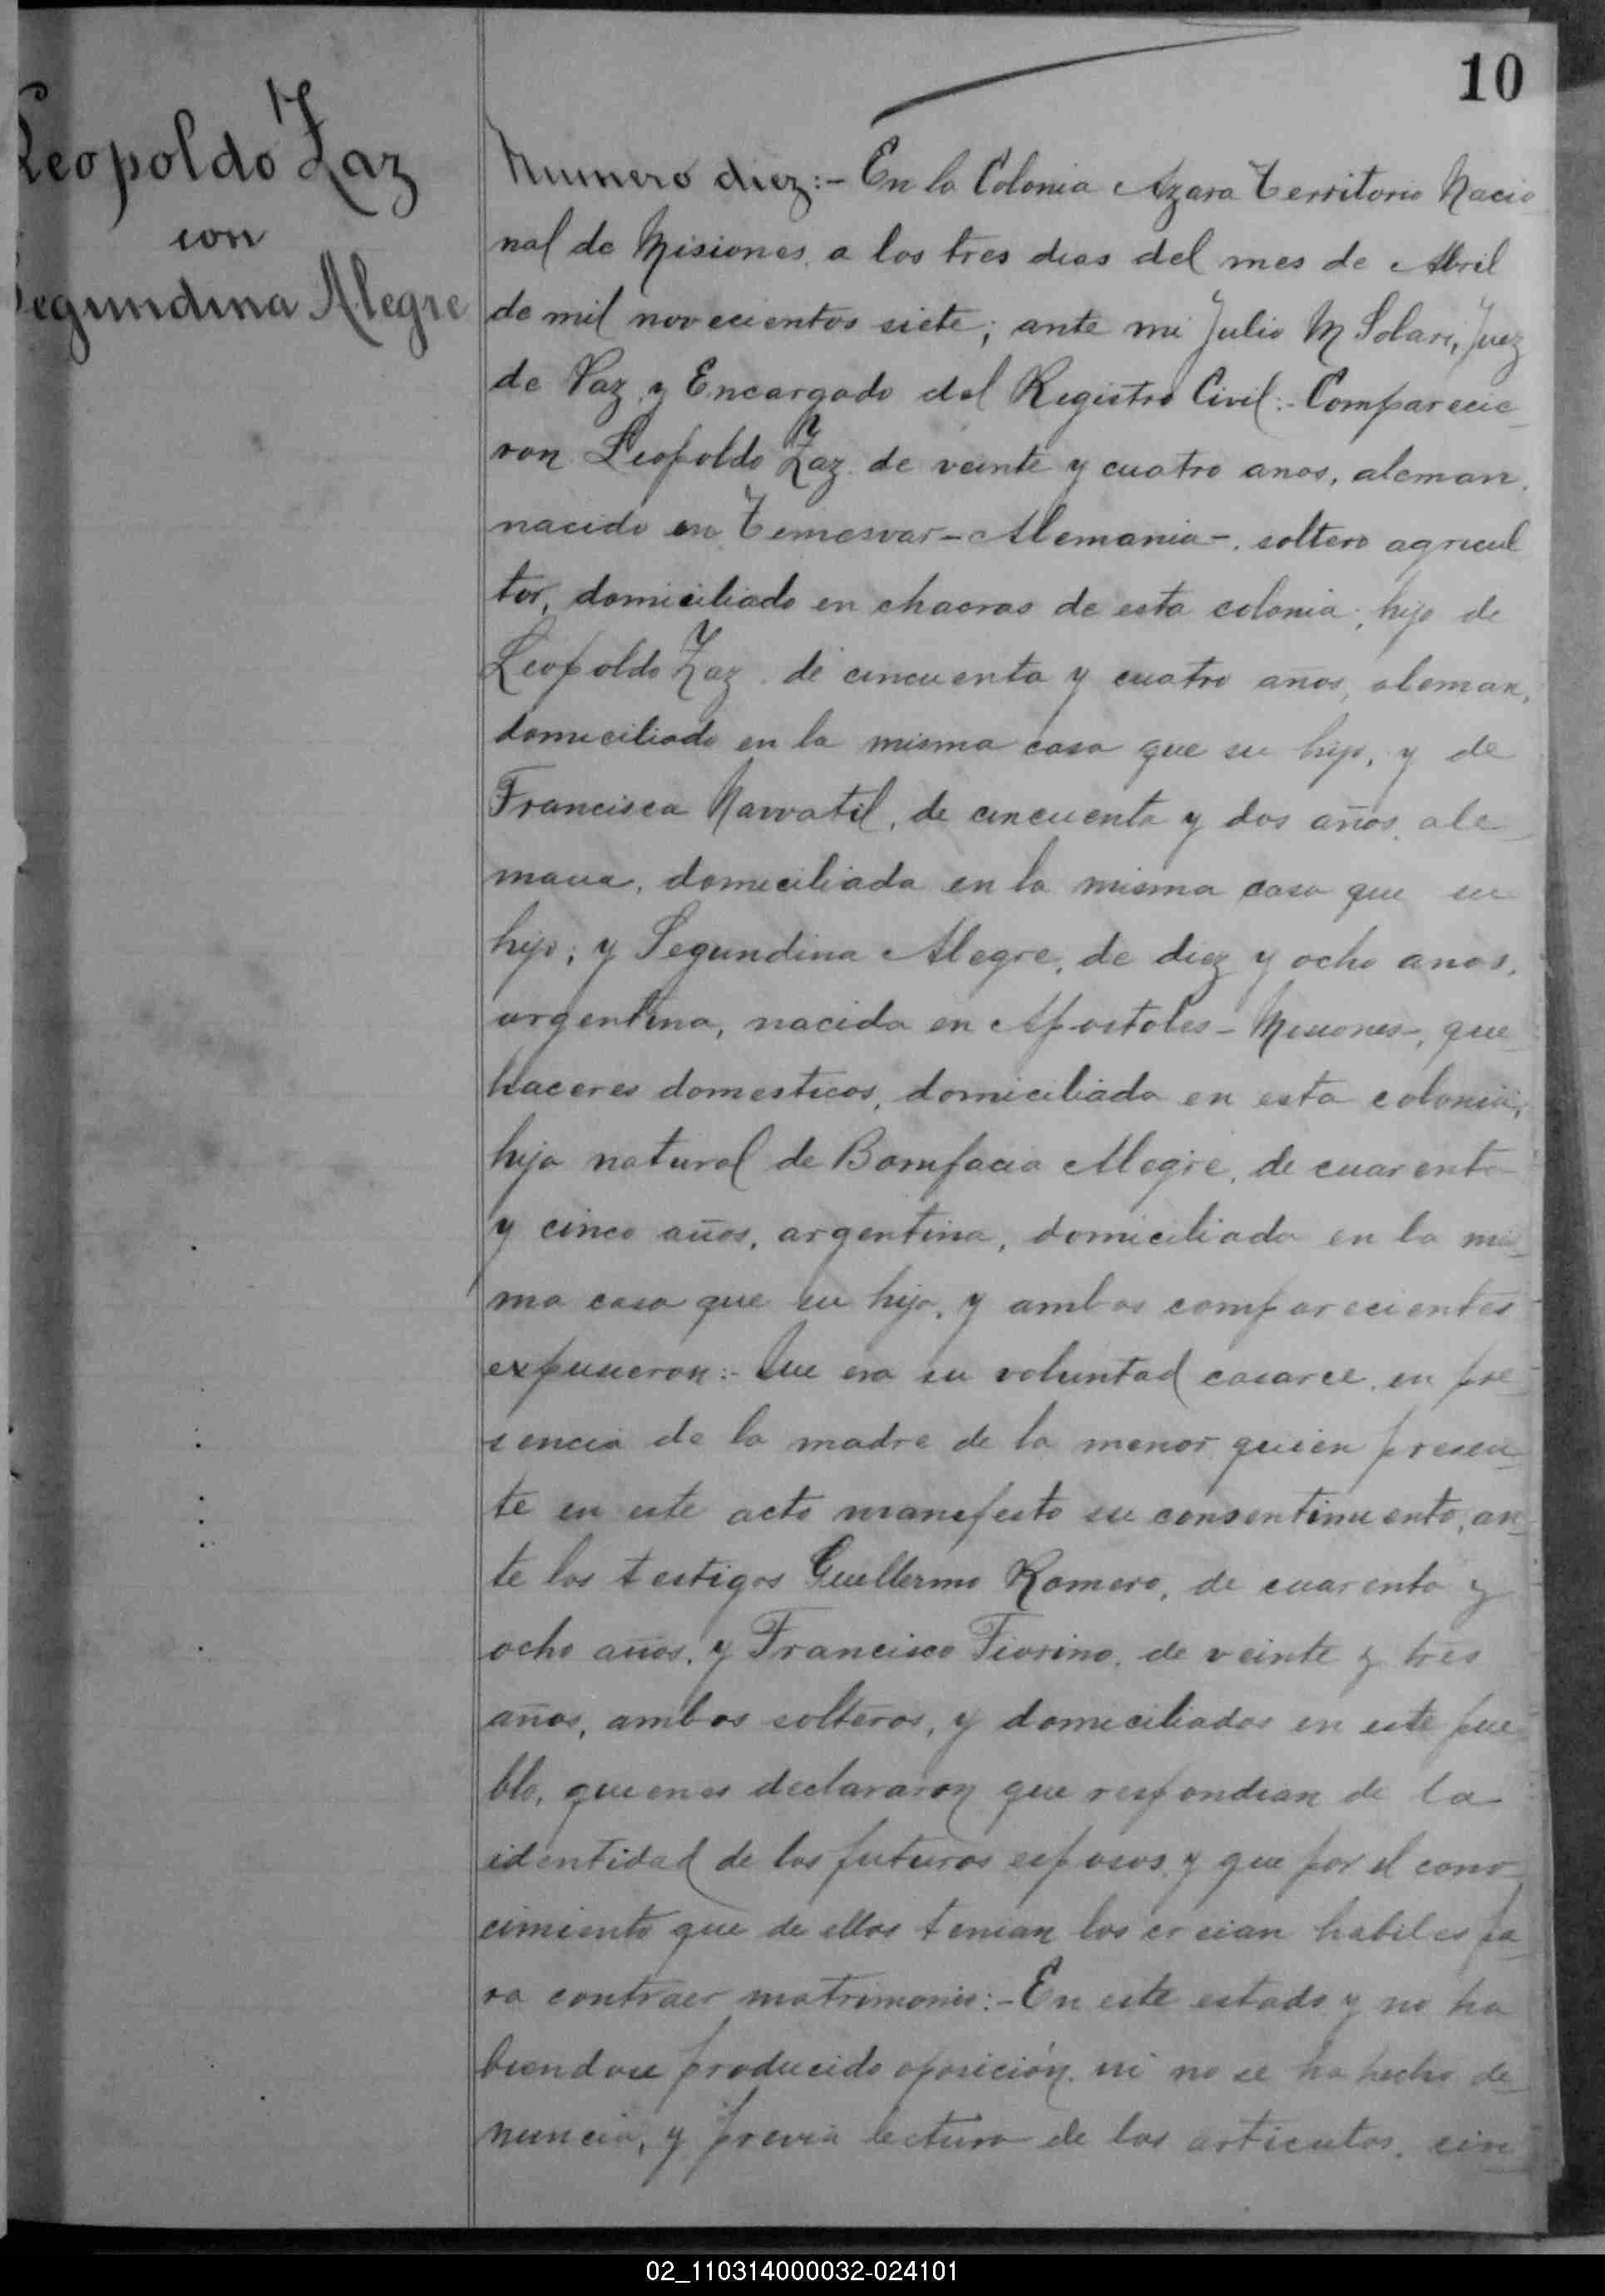 10
Leopoldo Zaz
con
Segundina Alegre
Numero diez:- En la Colonia Azara Territorio Nacio
nal de Misiones, a los tres dias del mes de Abril
de mil novecientos siete; ante mi Julio M Solari, Juez
de Paz y Encargado del Registro Civil:- Comparecie
ron Leopoldo Zaz de veinte y cuatro anos, aleman,
nacido en Temesvar-Alemania-, soltero agricul
tor, domiciliado en chacras de esta colonia, hijo de
Leopoldo Zaz de cincuenta y cuatro años, aleman,
domiciliado en la misma casa que su hijo, y de
Francisca Navratil, de cincuenta y dos años, ale
mana, domiciliada en la misma casa que su
hijo; y Segundina Alegre, de diez y ocho anos,
argentina, nacida en Apostoles-Misiones-, que
haceres domesticos, domiciliada en esta colonia,
hija natural de Bonifacia Alegre, de cuarenta
y cinco años, argentina, domiciliada en la mis
ma casa que su hija, y ambos comparecientes
expusieron:- Que era su voluntad casarce, en pre
sencia de la madre de la menor quien presen
te en este acto manifesto su consentimiento, an
te los testigos Guillermo Romero, de cuarenta y
ocho años, y Francisco Fiorino, de veinte y tres
años, ambos solteros, y domiciliados en este pue
blo, quienes declararon que respondian de la
identidad de los futuros esposos y que por el cono
cimiento que de ellos tenian los creian habiles pa
ra contraer matrimonio:- En este estado y no ha
biendose producido oposición, ni no se ha hecho de
nuncia, y previa lectura de los articulos, cin
02_110314000032-024101